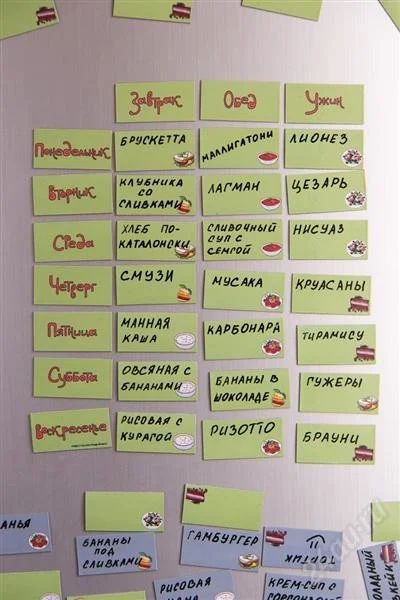 Завтрак Обед Ужин
Понедельник БРУСКЕТТА МАЛЛИГАТОНИ ЛИОНЕЗ
Вторник КЛУБНИКА СО СЛИВКАМИ ЛАГМАН ЦЕЗАРЬ
Среда ХЛЕБ ПО-КАТАЛОНСКИ СЛИВОЧНЫЙ СУП С СЕМГОЙ НИСУАЗ
Четверг СМУЗИ МУСАКА КРУАСАНЫ
Пятница МАННАЯ КАША КАРБОНАРА ТИРАМИСУ
Суббота ОВСЯНАЯ С БАНАНАМИ БАНАНЫ В ШОКОЛАДЕ ГУЖЕРЫ
Воскресенье РИСОВАЯ С КУРАГОЙ РИЗОТТО БРАУНИ
АНЬЯ
БАНАНЫ
ПОД
СЛИВКАМИ
ГАМБУРГЕР
ТОРТИК
РИСОВАЯ
КРЕМ-СУП С